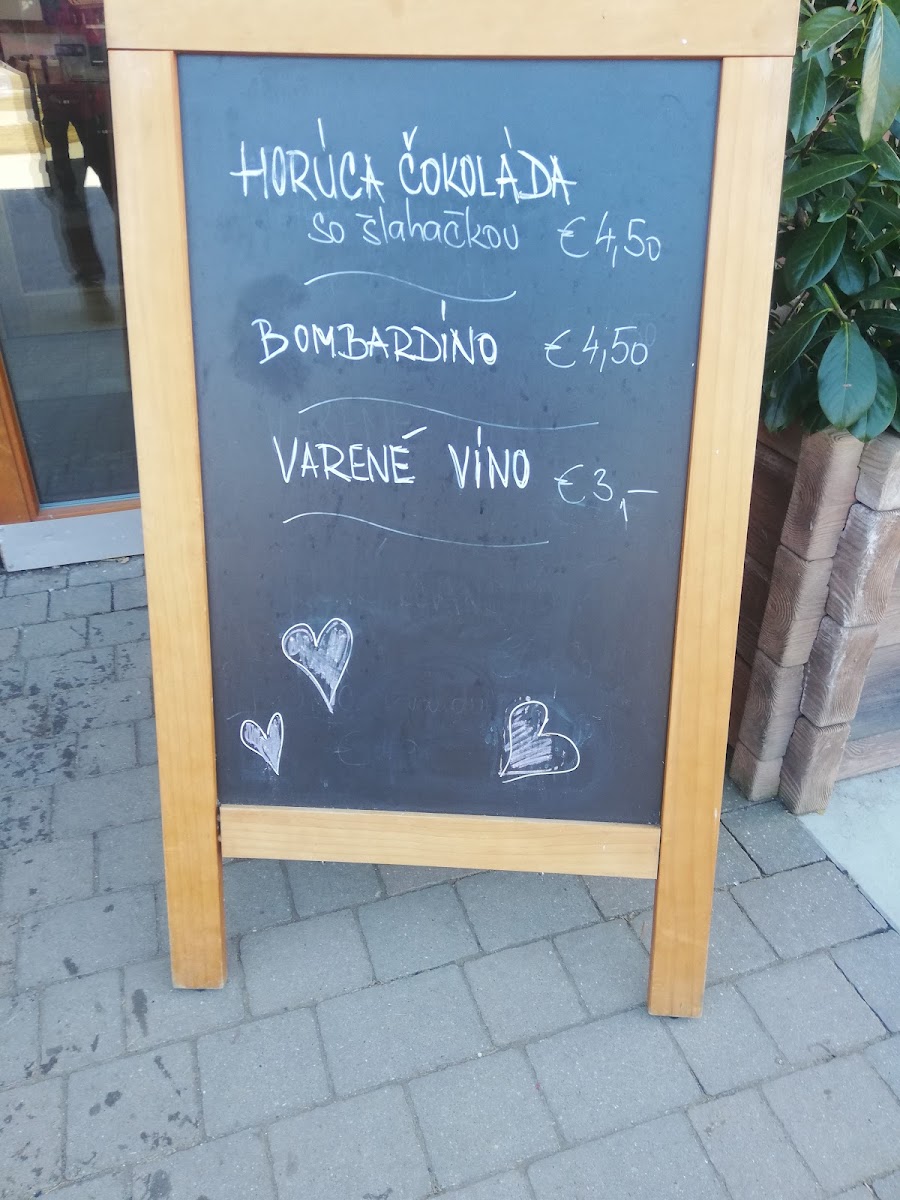 HORÚCA ČOKOLÁDA
so šlahačkou €4,50
BOMBARDÍNO €4,50
VARENÉ VÍNO €3,–